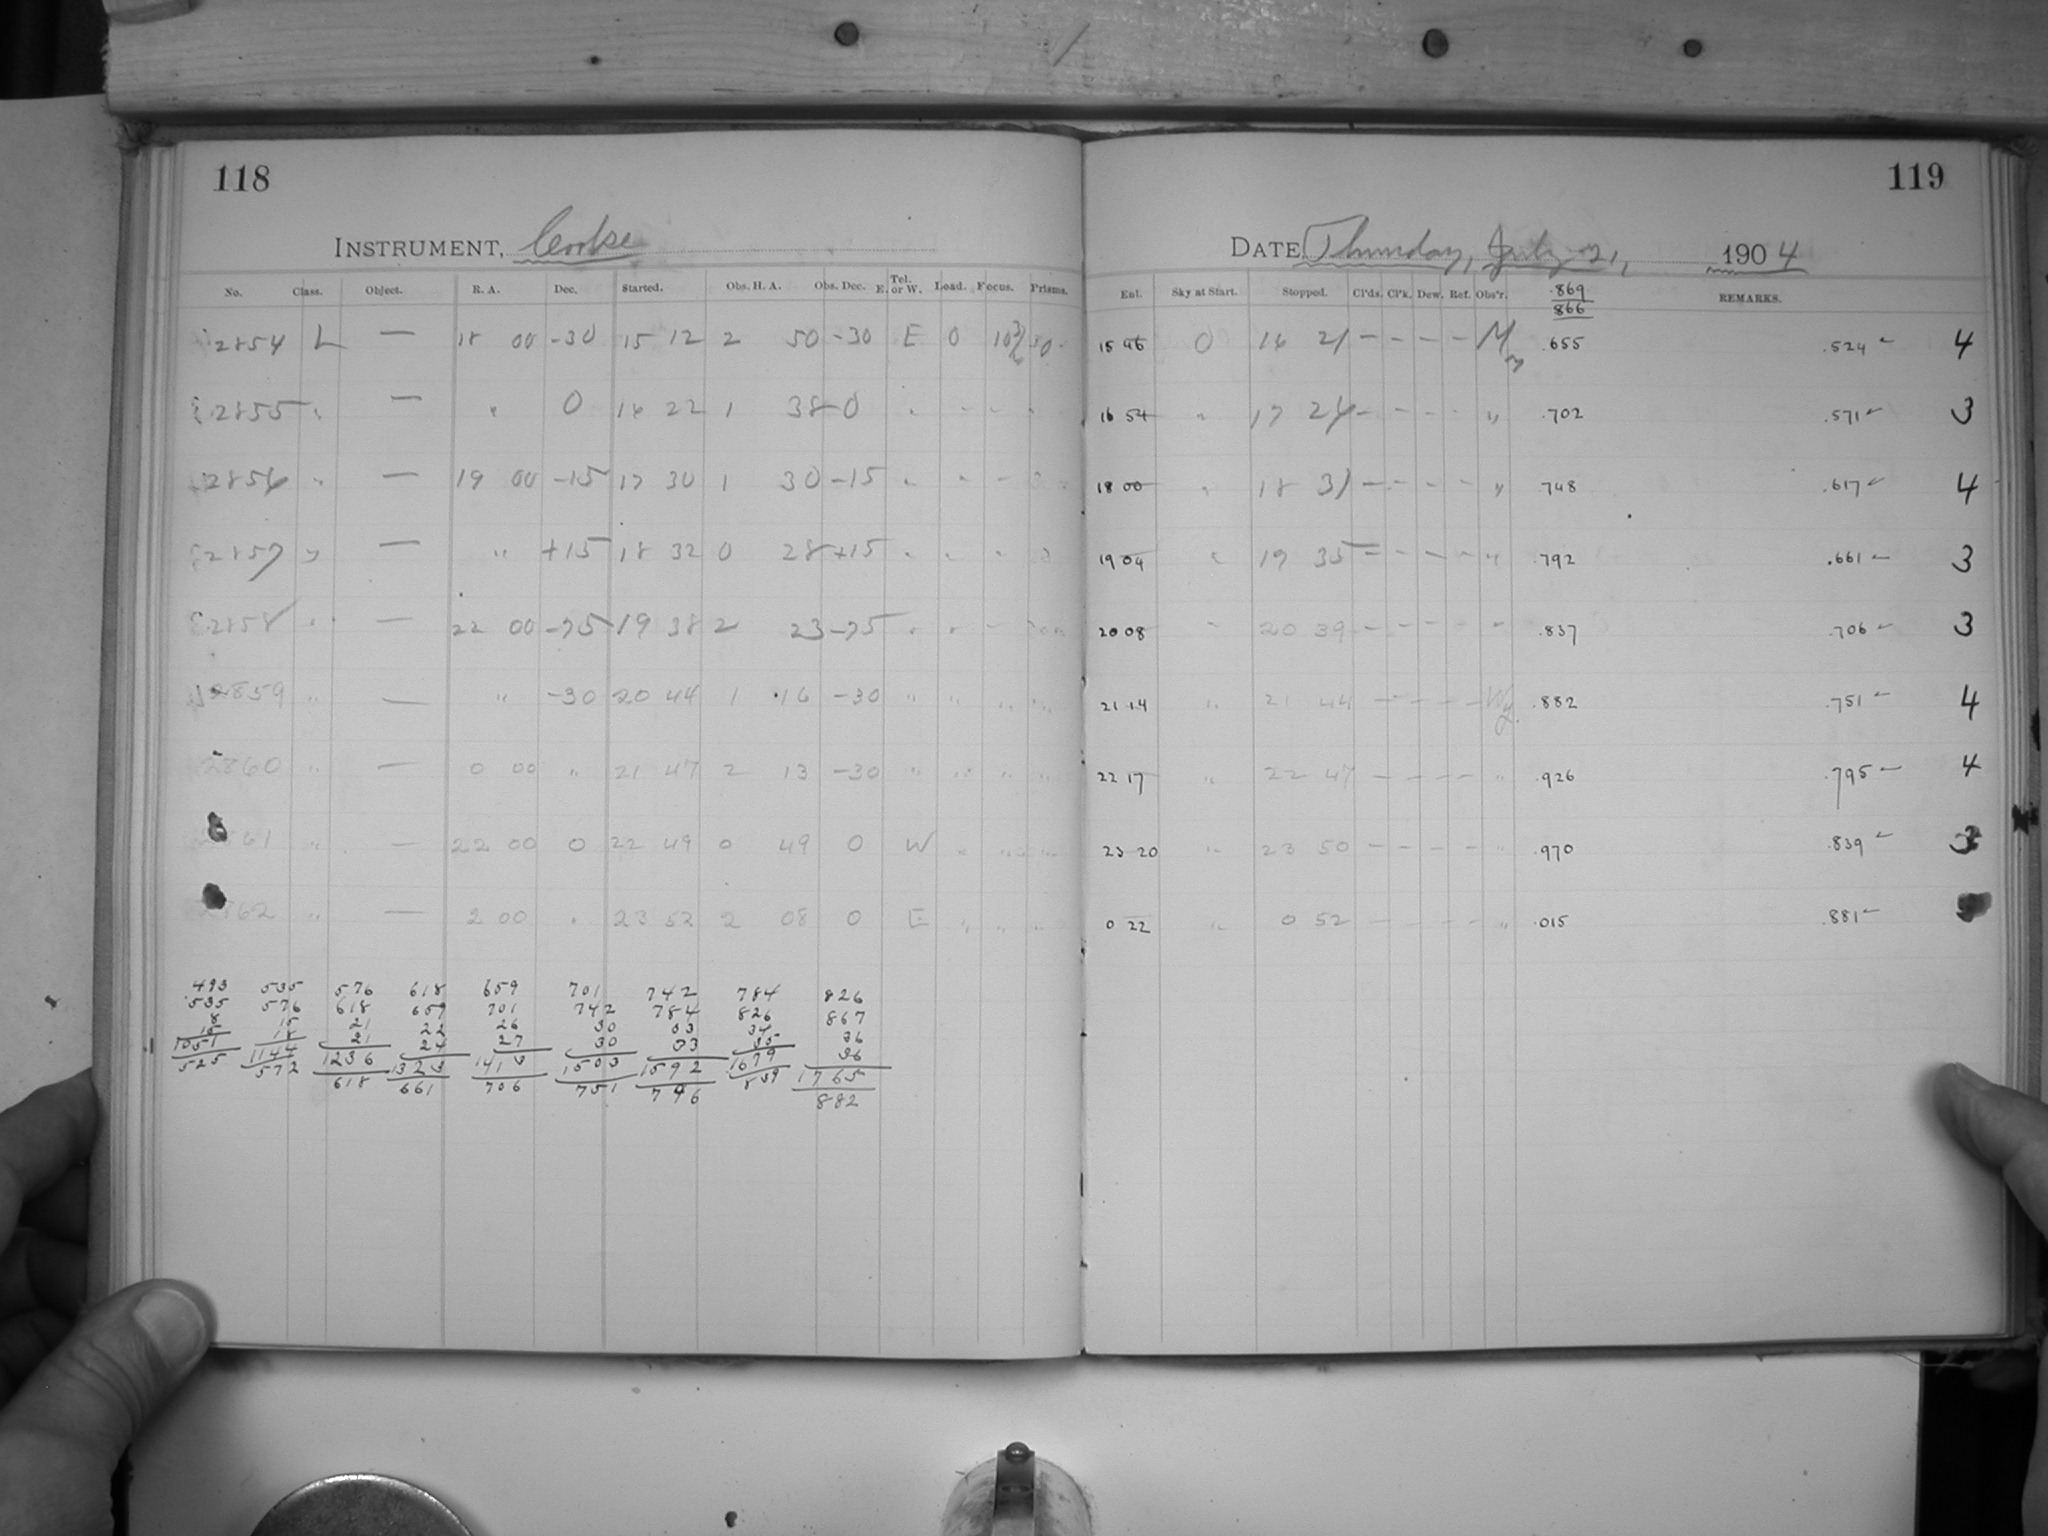 118
INSTRUMENT, Cooke
No. Class. Object. R. A. Dec. Started. Obs. H. A. Obs. Dec. Tel. E. or W. Load. Focus. Prisms.
2854 L — 18 00 -30 15 12 2 50 -30 E 0
2855 " — " 0 16 22 1 38 0 "
2856 " — 19 00 -15 17 30 1 30 -15 " " "
2857 " — " +15 18 32 0 28 +15 " " "
2858 " — 22 00 -75 19 38 2 23 -75 " " "
2859 " — " -30 20 44 1 16 -30 " " " "
2860 " — 0 00 " 21 47 2 13 -30 " " " "
2861 " — 22 00 0 22 49 0 49 0 W " " "
2862 " — 2 00 " 23 52 2 08 0 E " " "
493 535 576 618 659 701 742 784 826
535 576 618 659 701 742 784 826 867
8 15 21 22 26 30 33 34 36
15 18 21 24 27 30 33 35 36
1051 1144 1236 1323 1413 1503 1592 1679 1765
525 572 618 661 706 751 796 839 882
119
DATE, Thursday, July 21, 1904
Ent. Sky at Start. Stopped. Cl'ds. Cl'k. Dew. Ref. Obs'r. .869 REMARKS.
866
15 46 0 16 21 — — — — M .655 .524 4
16 54 " 17 24 — — — — " .702 .571 3
18 00 " 18 31 — — — — " .748 .617 4
19 04 " 19 35 — — — — " .792 .661 3
20 08 " 20 39 — — — — " .837 .706 3
21 14 " 21 44 — — — — .882 .751 4
22 17 " 22 47 — — — — " .926 .795 4
23 20 " 23 50 — — — — " .970 .839 3
0 22 " 0 52 — — — — " .015 .881